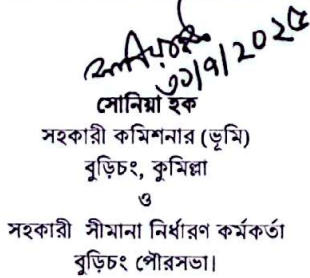 ৩১/৭/২০২৫
সোনিয়া হক
সহকারী কমিশনার (ভূমি)
বুড়িচং, কুমিল্লা
ও
সহকারী সীমানা নির্ধারণ কর্মকর্তা
বুড়িচং পৌরসভা।